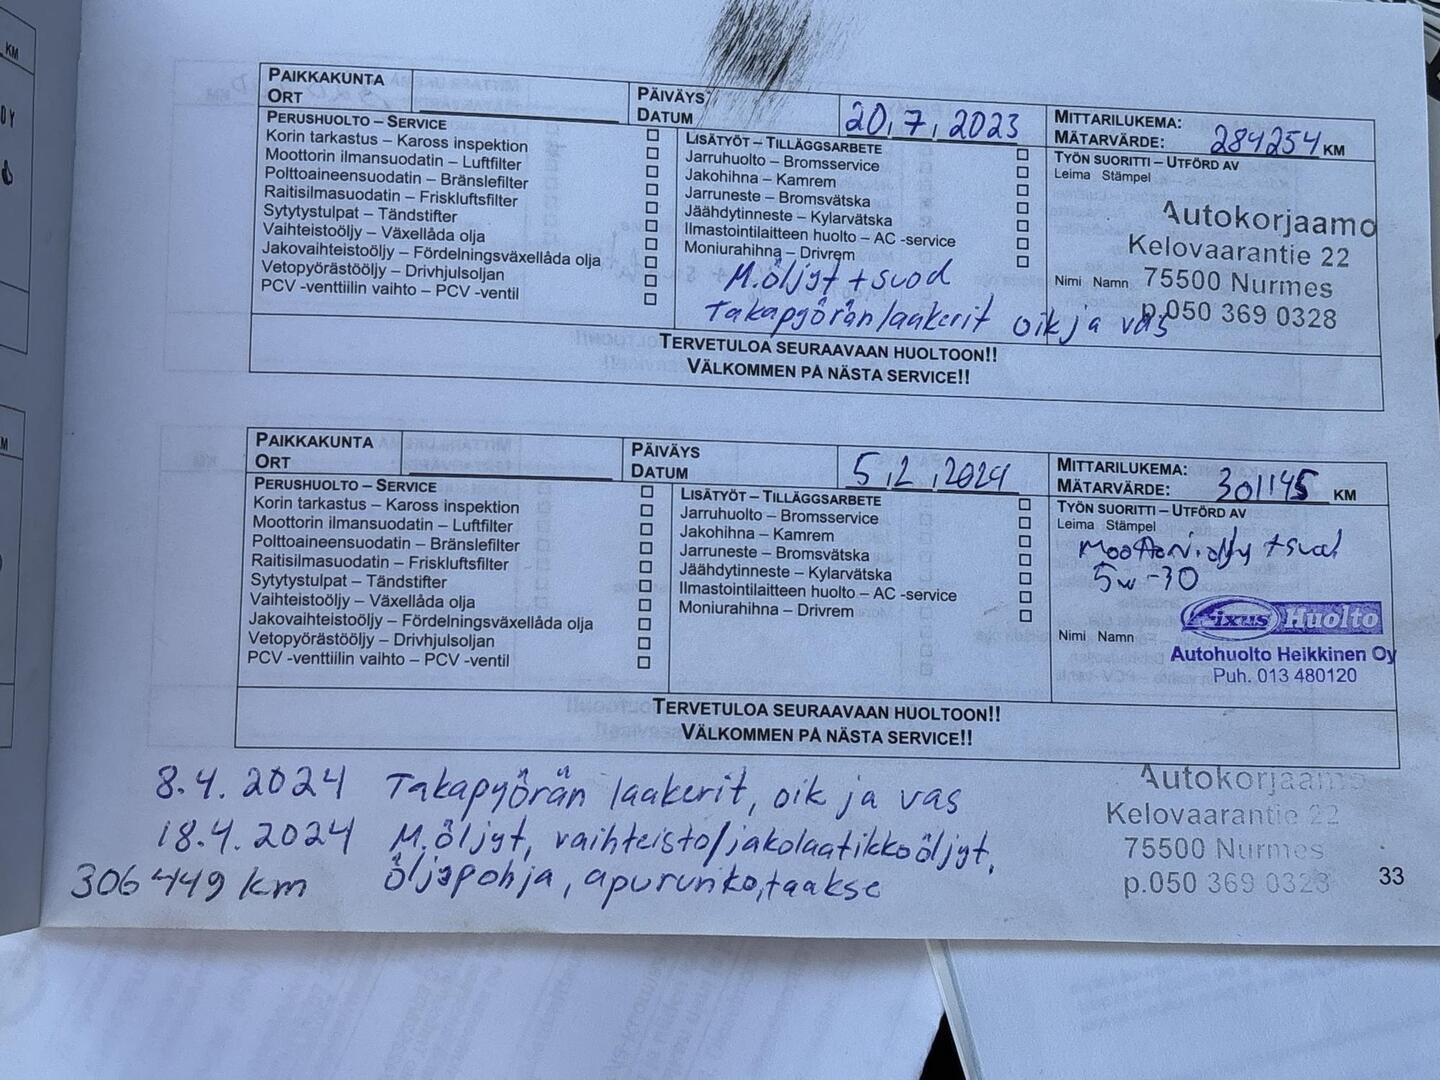 KM
PAIKKAKUNTA
ORT
PÄIVÄYS
DATUM
20.7.2023
MITTARILUKEMA:
MÄTARVÄRDE: 284254 KM
PERUSHUOLTO – SERVICE
Korin tarkastus – Kaross inspektion
Moottorin ilmansuodatin – Luftfilter
Polttoaineensuodatin – Bränslefilter
Raitisilmasuodatin – Friskluftsfilter
Sytytystulpat – Tändstifter
Vaihteistoöljy – Växellåda olja
Jakovaihteistoöljy – Fördelningsväxellåda olja
Vetopyörästööljy – Drivhjulsoljan
PCV -venttiilin vaihto – PCV -ventil
LISÄTYÖT – TILLÄGGSARBETE
Jarruhuolto – Bromsservice
Jakohihna – Kamrem
Jarruneste – Bromsvätska
Jäähdytinneste – Kylarvätska
Ilmastointilaitteen huolto – AC -service
Moniurahihna – Drivrem
M.öljyt + suod
Takapyörän laakerit oik ja vas
TYÖN SUORITTI – UTFÖRD AV
Leima Stämpel
Autokorjaamo
Kelovaarantie 22
Nimi Namn 75500 Nurmes
p.050 369 0328
TERVETULOA SEURAAVAAN HUOLTOON!!
VÄLKOMMEN PÅ NÄSTA SERVICE!!
PAIKKAKUNTA
ORT
PÄIVÄYS
DATUM
5.2.2024
MITTARILUKEMA:
MÄTARVÄRDE: 301145 KM
PERUSHUOLTO – SERVICE
Korin tarkastus – Kaross inspektion
Moottorin ilmansuodatin – Luftfilter
Polttoaineensuodatin – Bränslefilter
Raitisilmasuodatin – Friskluftsfilter
Sytytystulpat – Tändstifter
Vaihteistoöljy – Växellåda olja
Jakovaihteistoöljy – Fördelningsväxellåda olja
Vetopyörästööljy – Drivhjulsoljan
PCV -venttiilin vaihto – PCV -ventil
LISÄTYÖT – TILLÄGGSARBETE
Jarruhuolto – Bromsservice
Jakohihna – Kamrem
Jarruneste – Bromsvätska
Jäähdytinneste – Kylarvätska
Ilmastointilaitteen huolto – AC -service
Moniurahihna – Drivrem
TYÖN SUORITTI – UTFÖRD AV
Leima Stämpel
Moottoriöljy + suod
5w-30
Fixus Huolto
Nimi Namn
Autohuolto Heikkinen Oy
Puh. 013 480120
TERVETULOA SEURAAVAAN HUOLTOON!!
VÄLKOMMEN PÅ NÄSTA SERVICE!!
8.4.2024 Takapyörän laakerit, oik ja vas
18.4.2024 M.öljyt, vaihteisto/jakolaatikkoöljyt,
306449 km öljypohja, apurunko, taakse
Autokorjaamo
Kelovaarantie 22
75500 Nurmes
p.050 369 0328
33